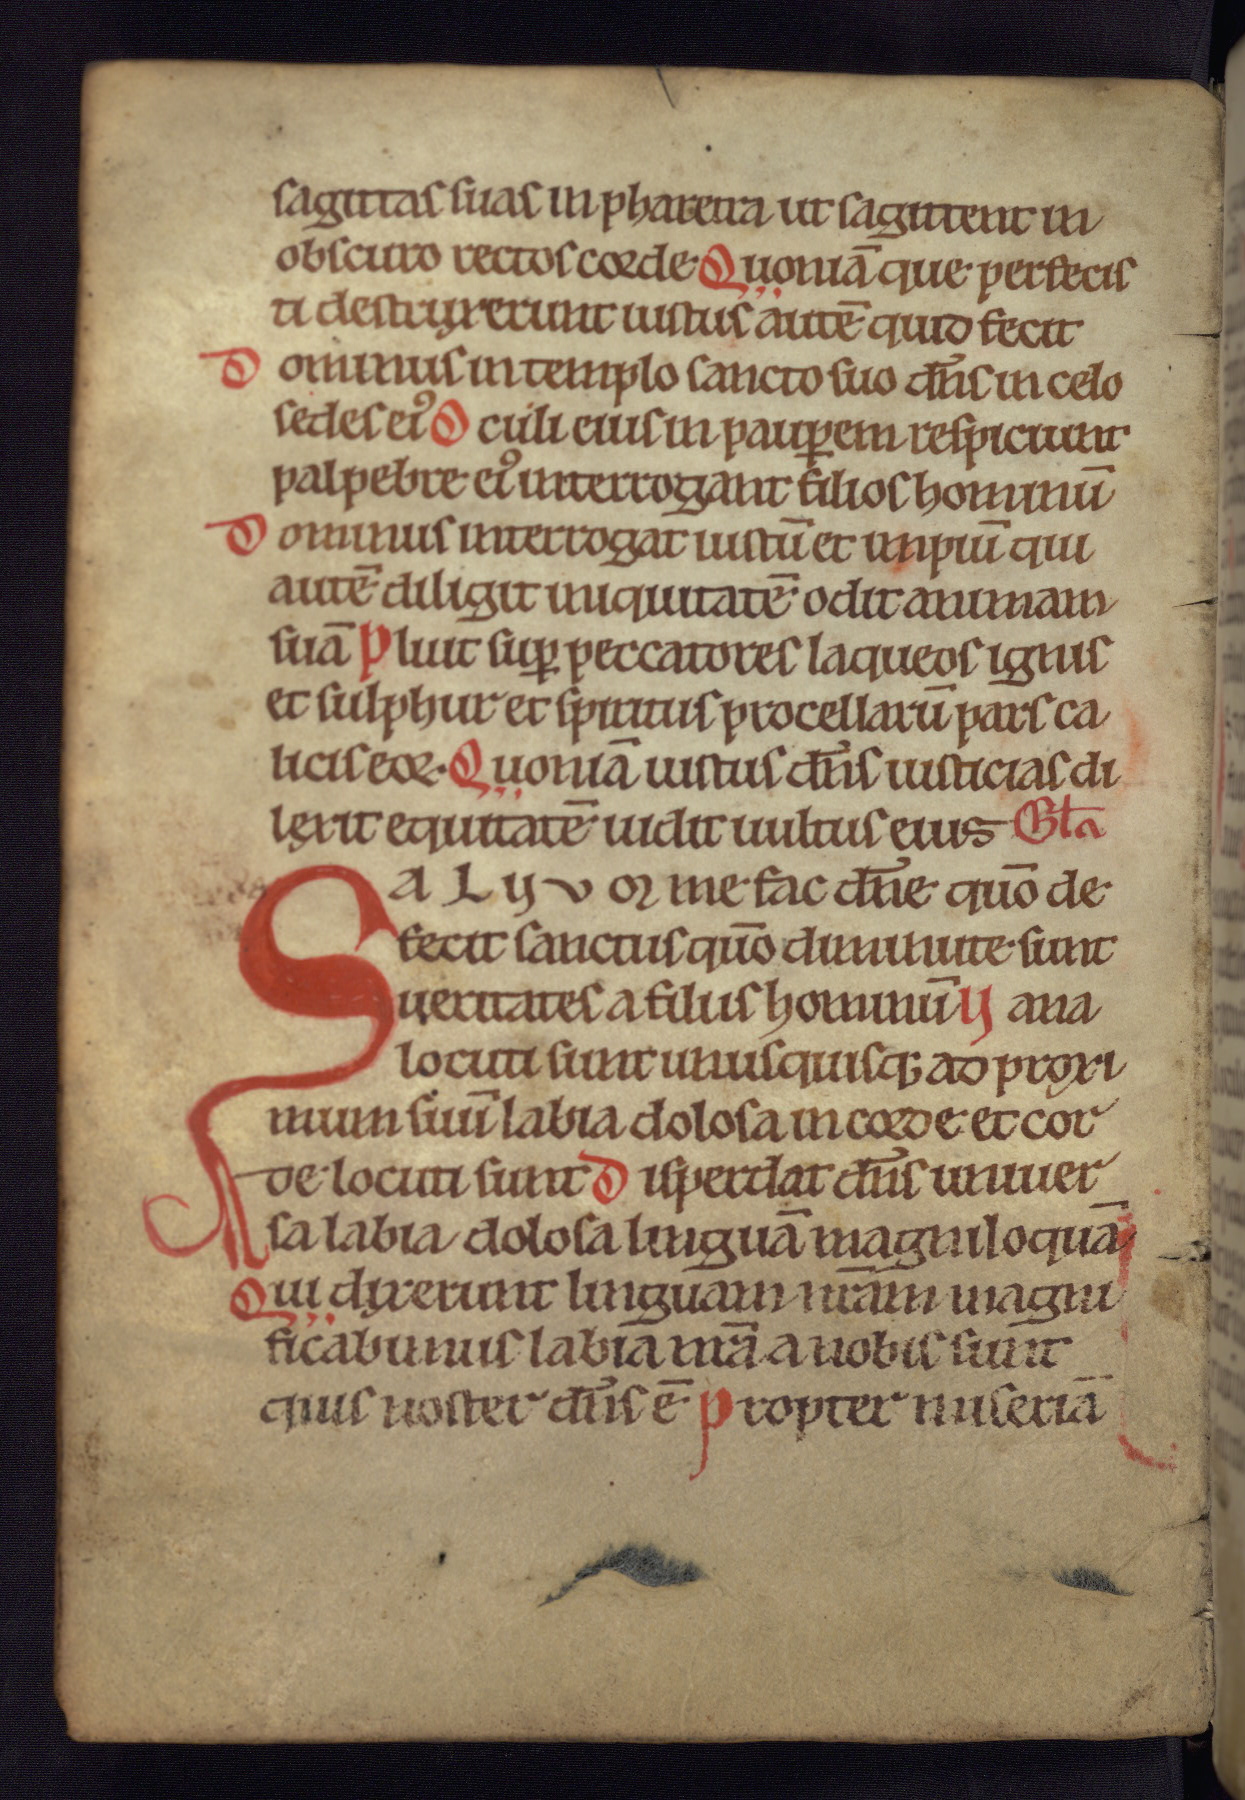 sagittas suas in pharetra ut sagittent in
obscuro rectos corde Quoniā que perfecis
ti destruxerunt iustus autē quid fecit
Dominus in templo sancto suo dn̄s in celo
sedes eiꝰ Oculi eius in pauꝑem respiciunt
palpebre eiꝰ interrogant filios hominū
Dominus interrogat iustū et impiū qui
autē diligit iniquitatē odit animam
suā Pluit suꝑ peccatores laqueos ignis
et sulphur et spiritus procellarū pars ca
licis eoꝝ Quoniā iustus dn̄s iusticias di
lexit equitatē uidit uultus eius Gl̄a
Salvvm me fac dn̄e quō de
fecit sanctus quō diminute sunt
ueritates a filiis hominū Vana
locuti sunt unusquisqꝫ ad proxi
mum suū labia dolosa in corde et cor
de locuti sunt Disperdat dn̄s uniuer
sa labia dolosa linguā magniloquā
Qui dixerunt linguam nr̄am magni
ficabimus labia nr̄a a nobis sunt
quis noster dn̄s ē Propter miseriā